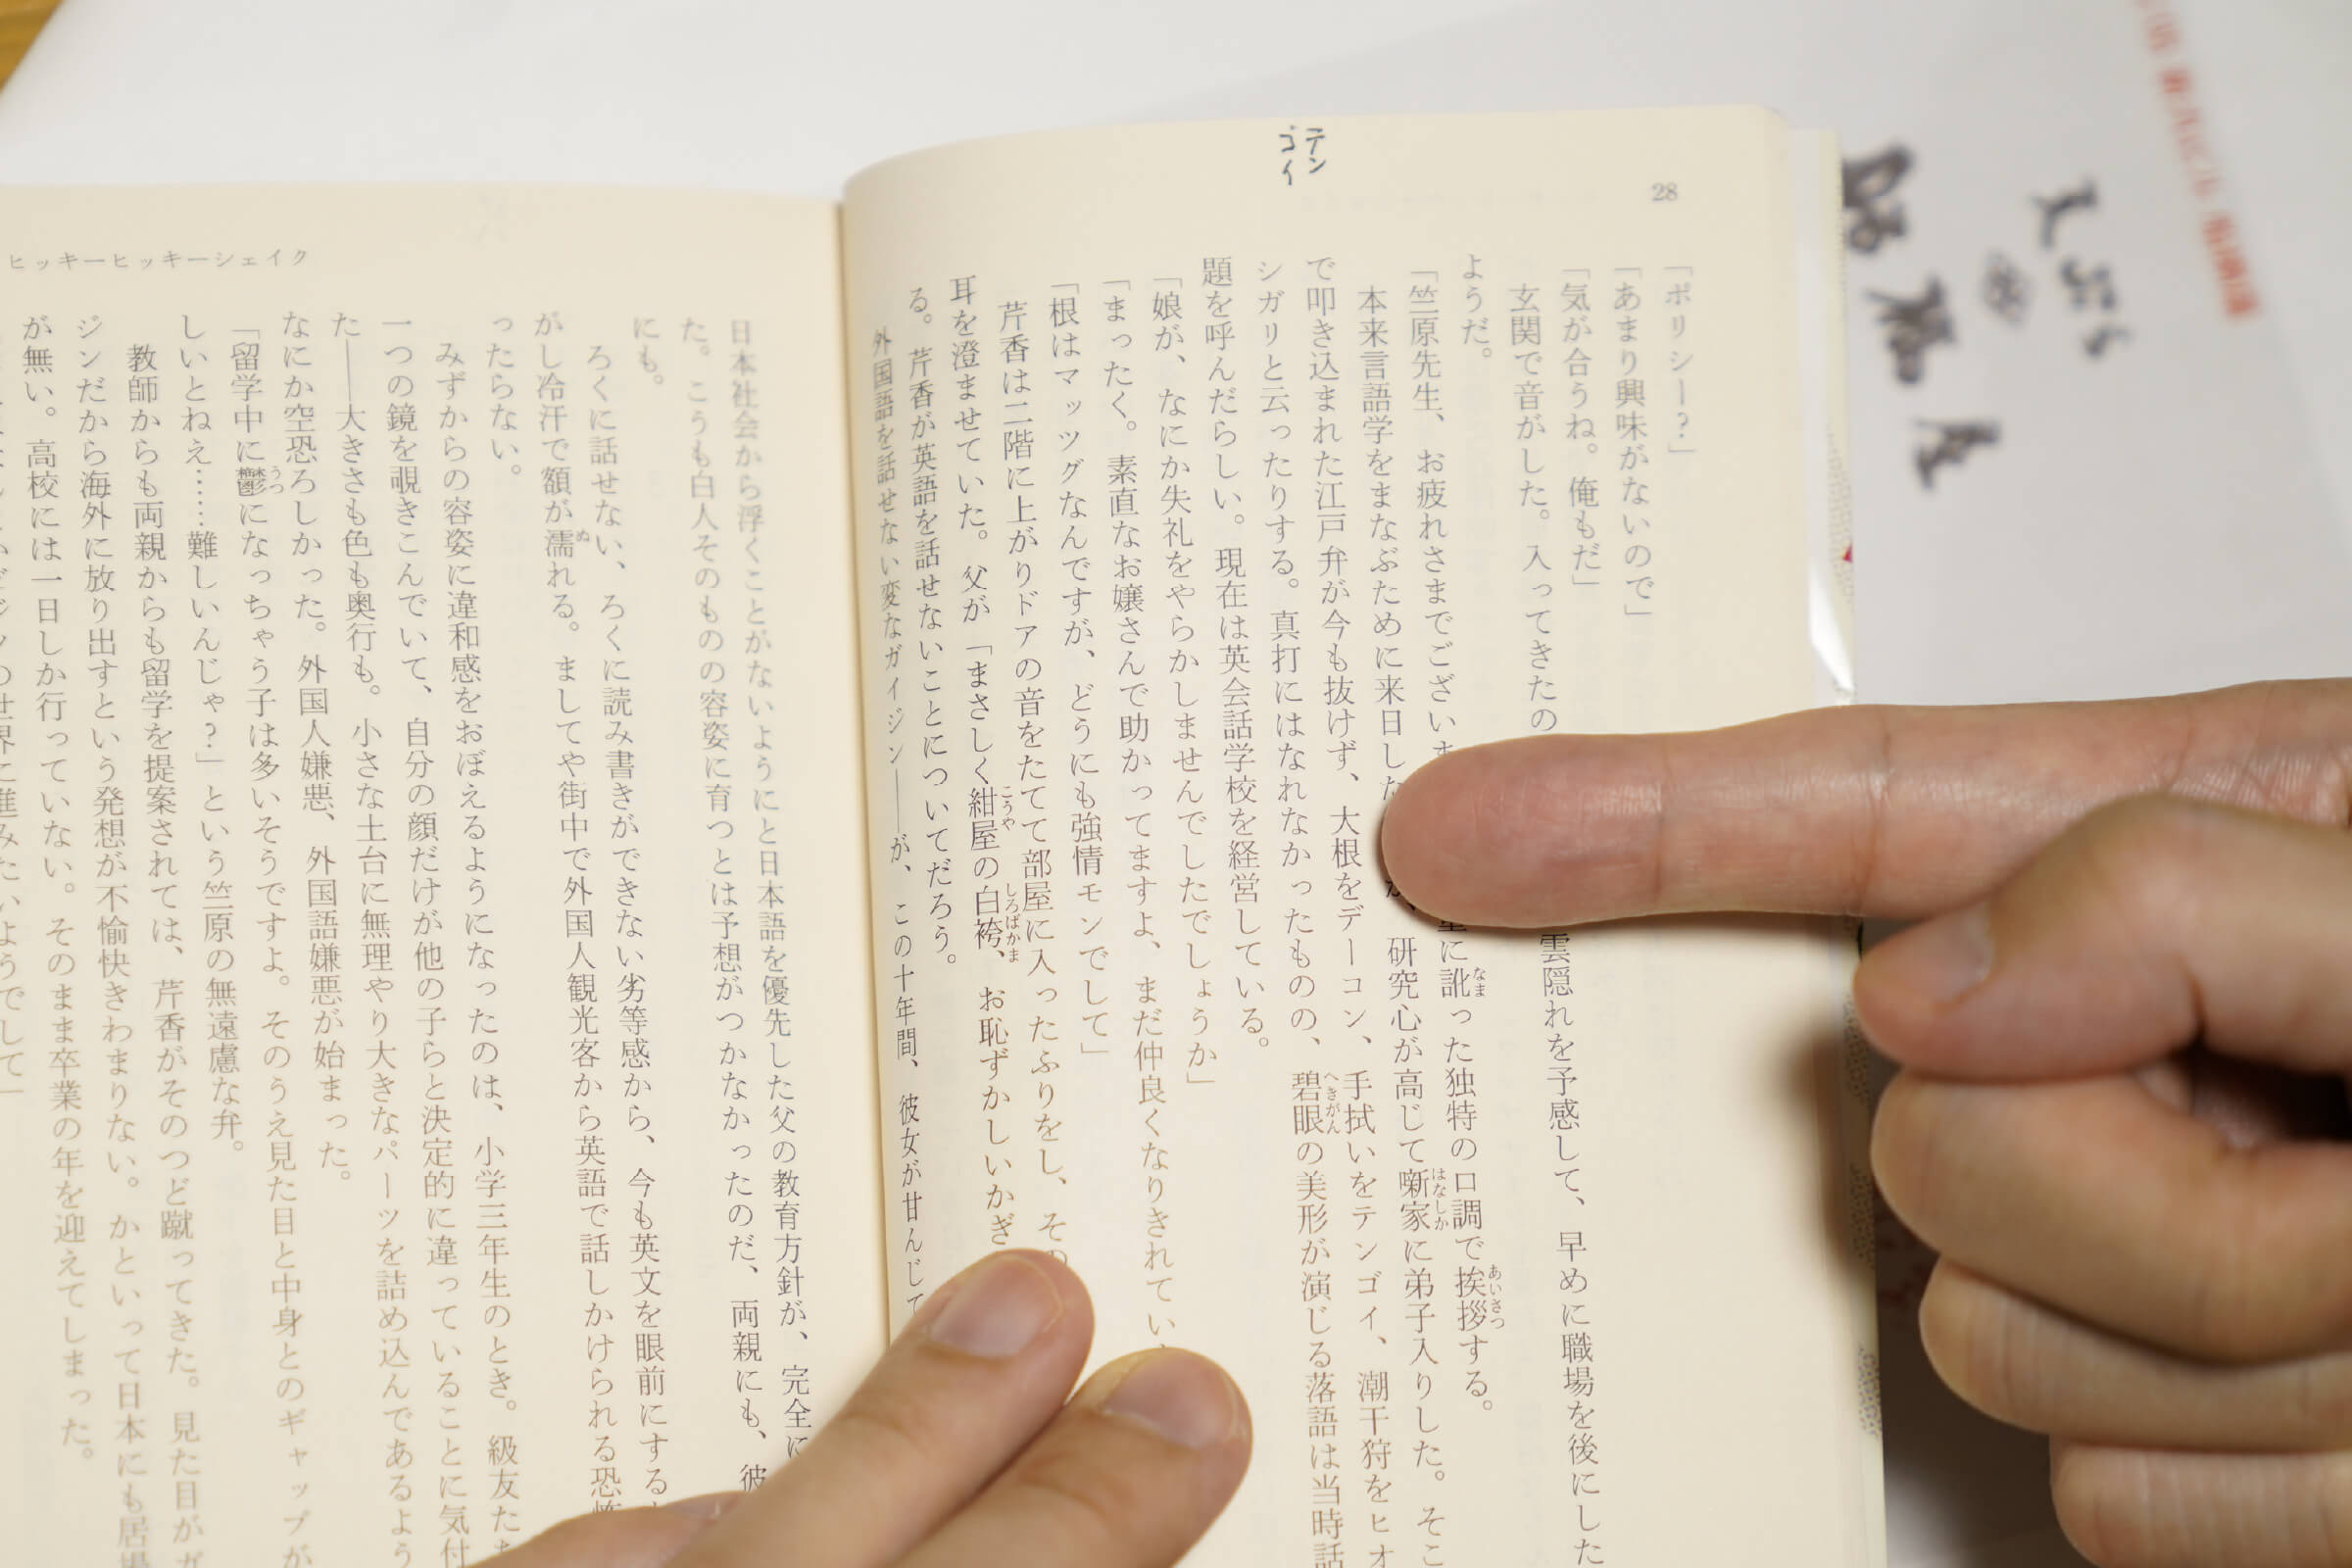 テン
ゴイ
28
「ポリシー？」
「あまり興味がないので」
「気が合うね。俺もだ」
玄関で音がした。入ってきたの
雲隠れを予感して、早めに職場を後にした
ようだ。
「竺原先生、お疲れさまでござい
に訛った独特の口調で挨拶する。
なま
あいさつ
本来言語学をまなぶために来日した
が、研究心が高じて噺家に弟子入りした。そこ
はなしか
で叩き込まれた江戸弁が今も抜けず、大根をデーコン、手拭いをテンゴイ、潮干狩をヒオ
シガリと云ったりする。真打にはなれなかったものの、碧眼の美形が演じる落語は当時話
へきがん
題を呼んだらしい。現在は英会話学校を経営している。
「娘が、なにか失礼をやらかしませんでしたでしょうか」
「まったく。素直なお嬢さんで助かってますよ、まだ仲良くなりきれてい
「根はマッツグなんですが、どうにも強情モンでして」
芹香は二階に上がりドアの音をたてて部屋に入ったふりをし、その
耳を澄ませていた。父が「まさしく紺屋の白袴、お恥ずかしいかぎ
こうや
しろばかま
る。芹香が英語を話せないことについてだろう。
外国語を話せない変なガイジン――が、この十年間、彼女が甘んじて
ヒッキーヒッキーシェイク
日本社会から浮くことがないようにと日本語を優先した父の教育方針が、完全に
た。こうも白人そのものの容姿に育つとは予想がつかなかったのだ、両親にも、彼
にも。
ろくに話せない、ろくに読み書きができない劣等感から、今も英文を眼前にする
がし冷汗で額が濡れる。ましてや街中で外国人観光客から英語で話しかけられる恐怖
ぬ
ったらない。
みずからの容姿に違和感をおぼえるようになったのは、小学三年生のとき。級友たち
一つの鏡を覗きこんでいて、自分の顔だけが他の子らと決定的に違っていることに気付
た――大きさも色も奥行も。小さな土台に無理やり大きなパーツを詰め込んであるよう
なにか空恐ろしかった。外国人嫌悪、外国語嫌悪が始まった。
「留学中に鬱になっちゃう子は多いそうですよ。そのうえ見た目と中身とのギャップが
うつ
しいとねえ……難しいんじゃ？」という竺原の無遠慮な弁。
教師からも両親からも留学を提案されては、芹香がそのつど蹴ってきた。見た目がガ
ジンだから海外に放り出すという発想が不愉快きわまりない。かといって日本にも居場
が無い。高校には一日しか行っていない。そのまま卒業の年を迎えてしまった。
の世界に進みたいようでして」